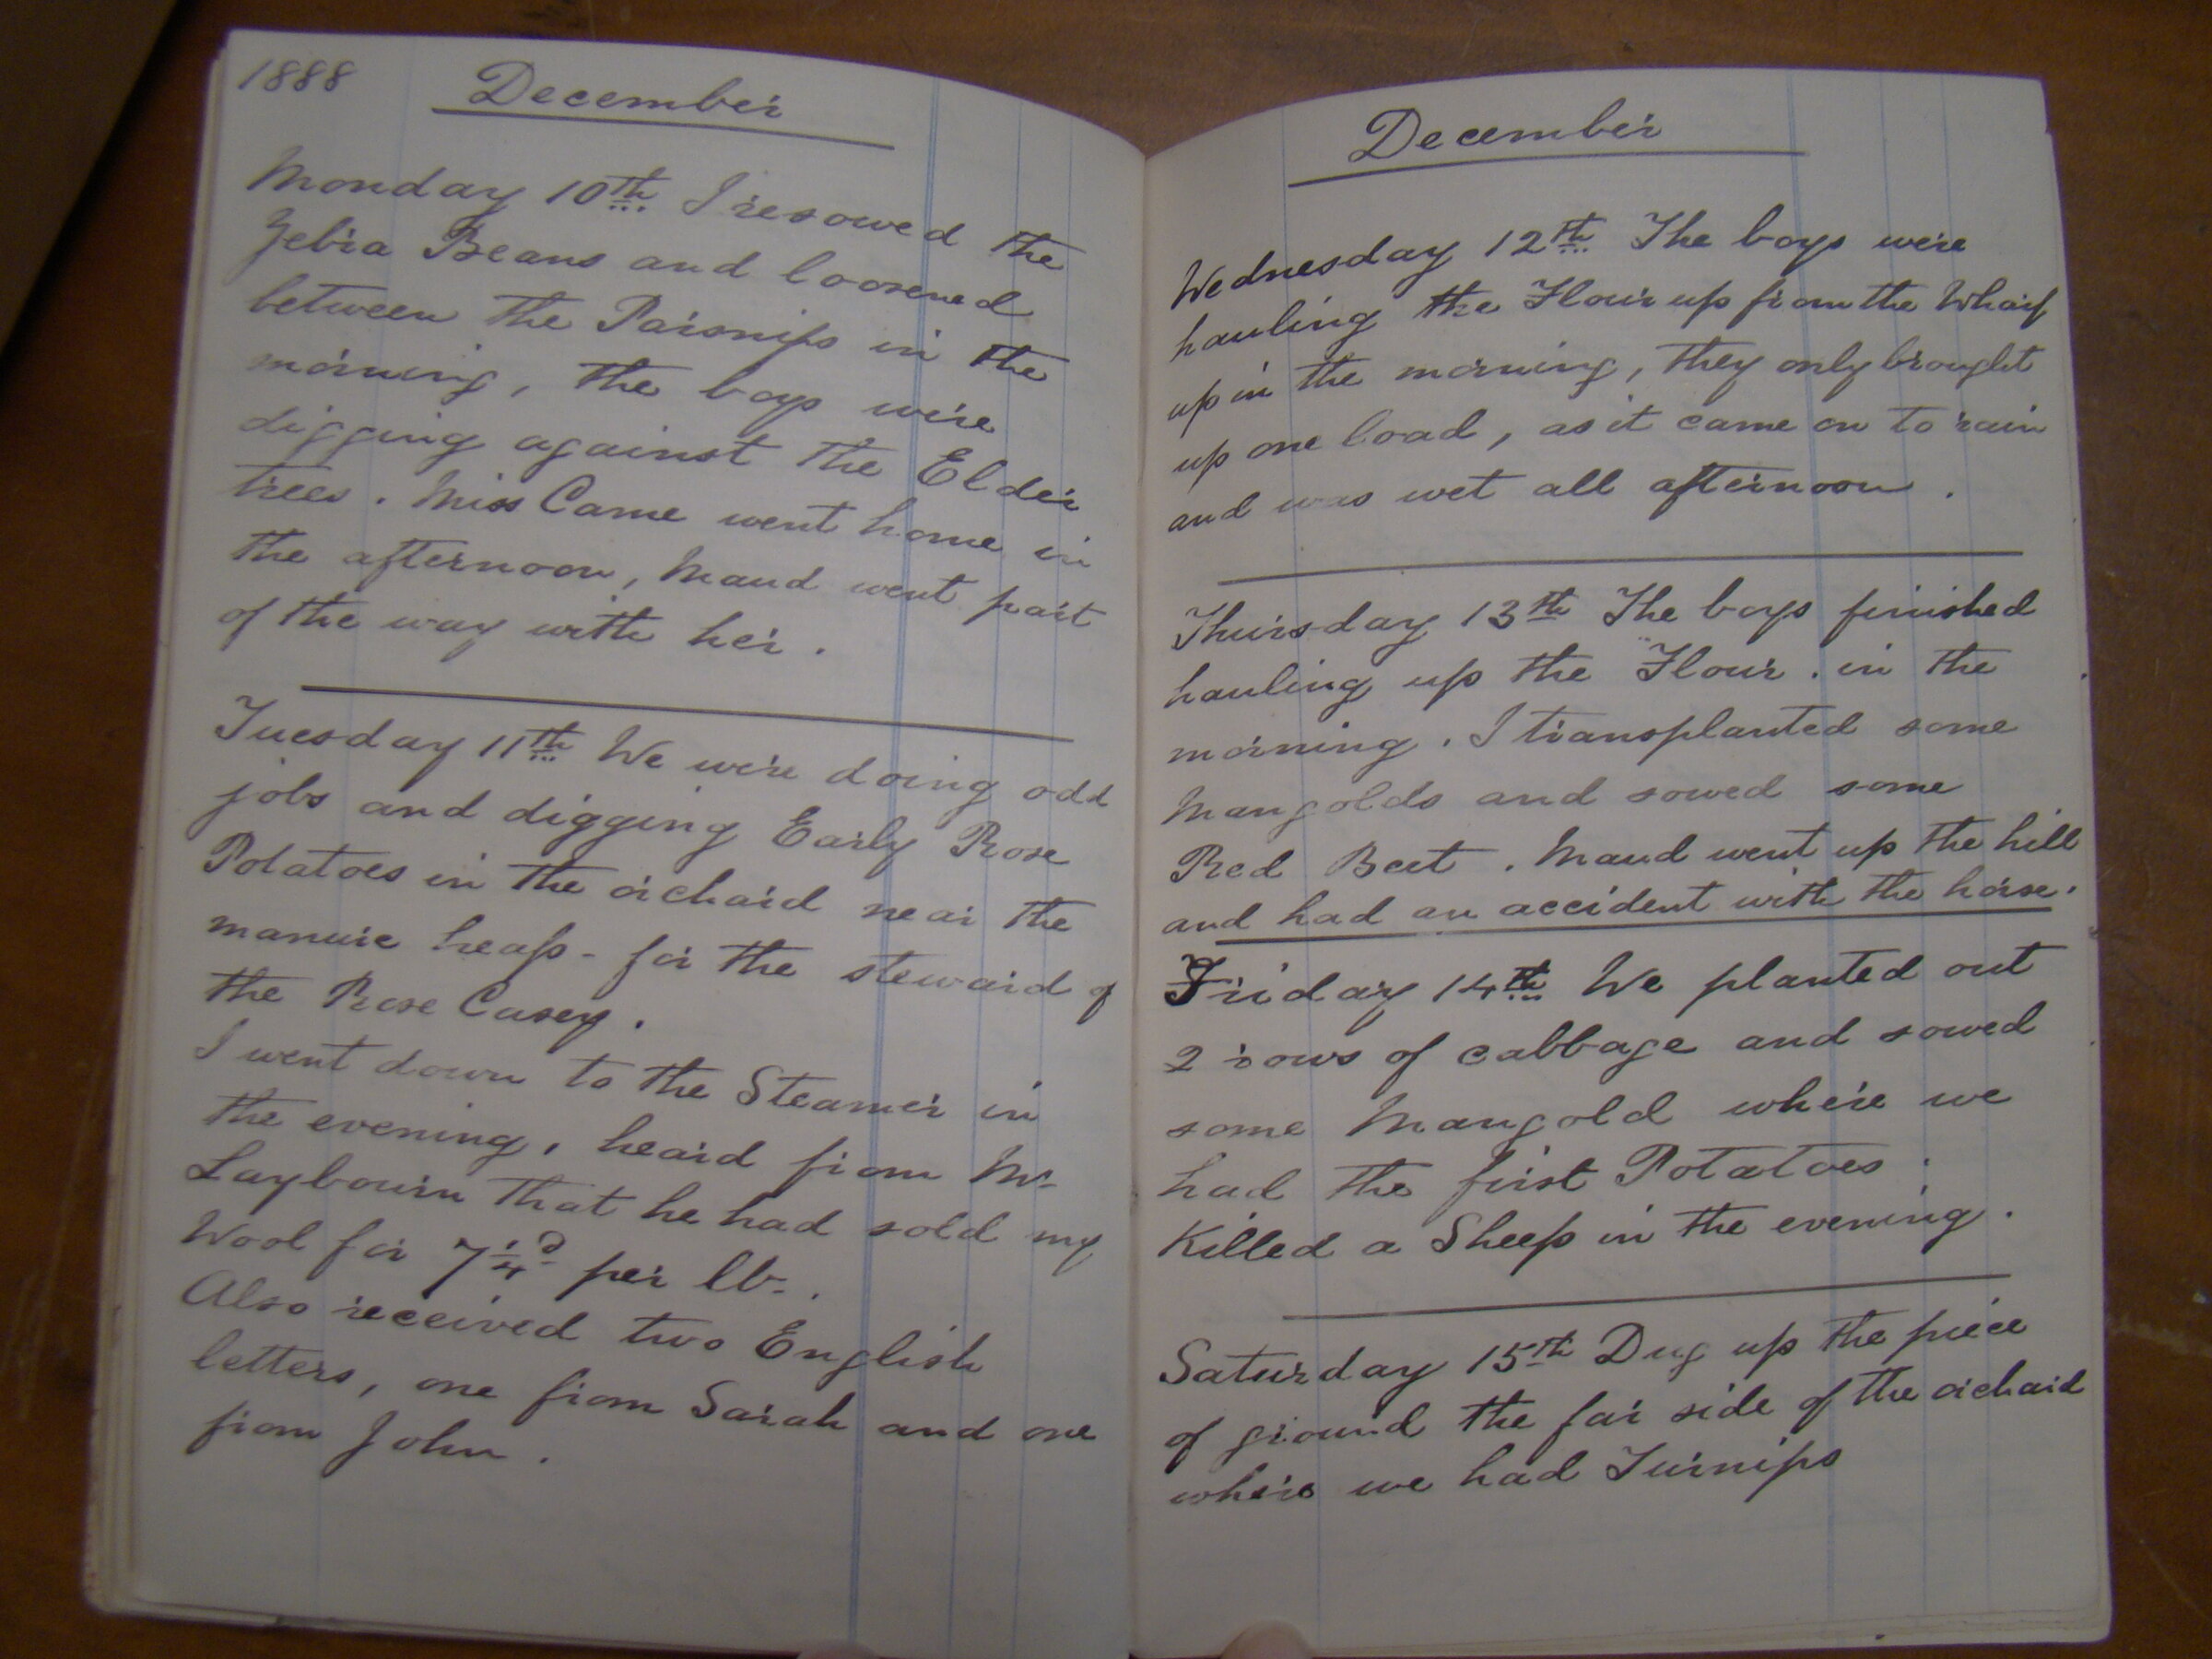 1888 December
Monday 10th I resowed the
Zebra Beans and loosened
between the Parsnips in the
morning, the boys were
digging against the Elder
trees. Miss Came went home in
the afternoon, Maud went part
of the way with her.
Tuesday 11th We were doing odd
jobs and digging Early Rose
Potatoes in the orchard near the
manure heap - for the steward of
the Rose Casey.
I went down to the Steamer in
the evening, heard from Mr
Laybourn that he had sold my
Wool for 7 1/4d per lb.
Also received two English
letters, one from Sarah and one
from John.
December
Wednesday 12th The boys were
hauling the Flour up from the Wharf
up in the morning, they only brought
up one load, as it came on to rain
and was wet all afternoon.
Thursday 13th The boys finished
hauling up the Flour. in the
morning. I transplanted some
Mangolds and sowed some
Red Beet. Maud went up the hill
and had an accident with the horse.
Friday 14th We planted out
2 rows of cabbage and sowed
some Mangold where we
had the first Potatoes.
Killed a Sheep in the evening.
Saturday 15th Dug up the piece
of ground the far side of the orchard
where we had Turnips